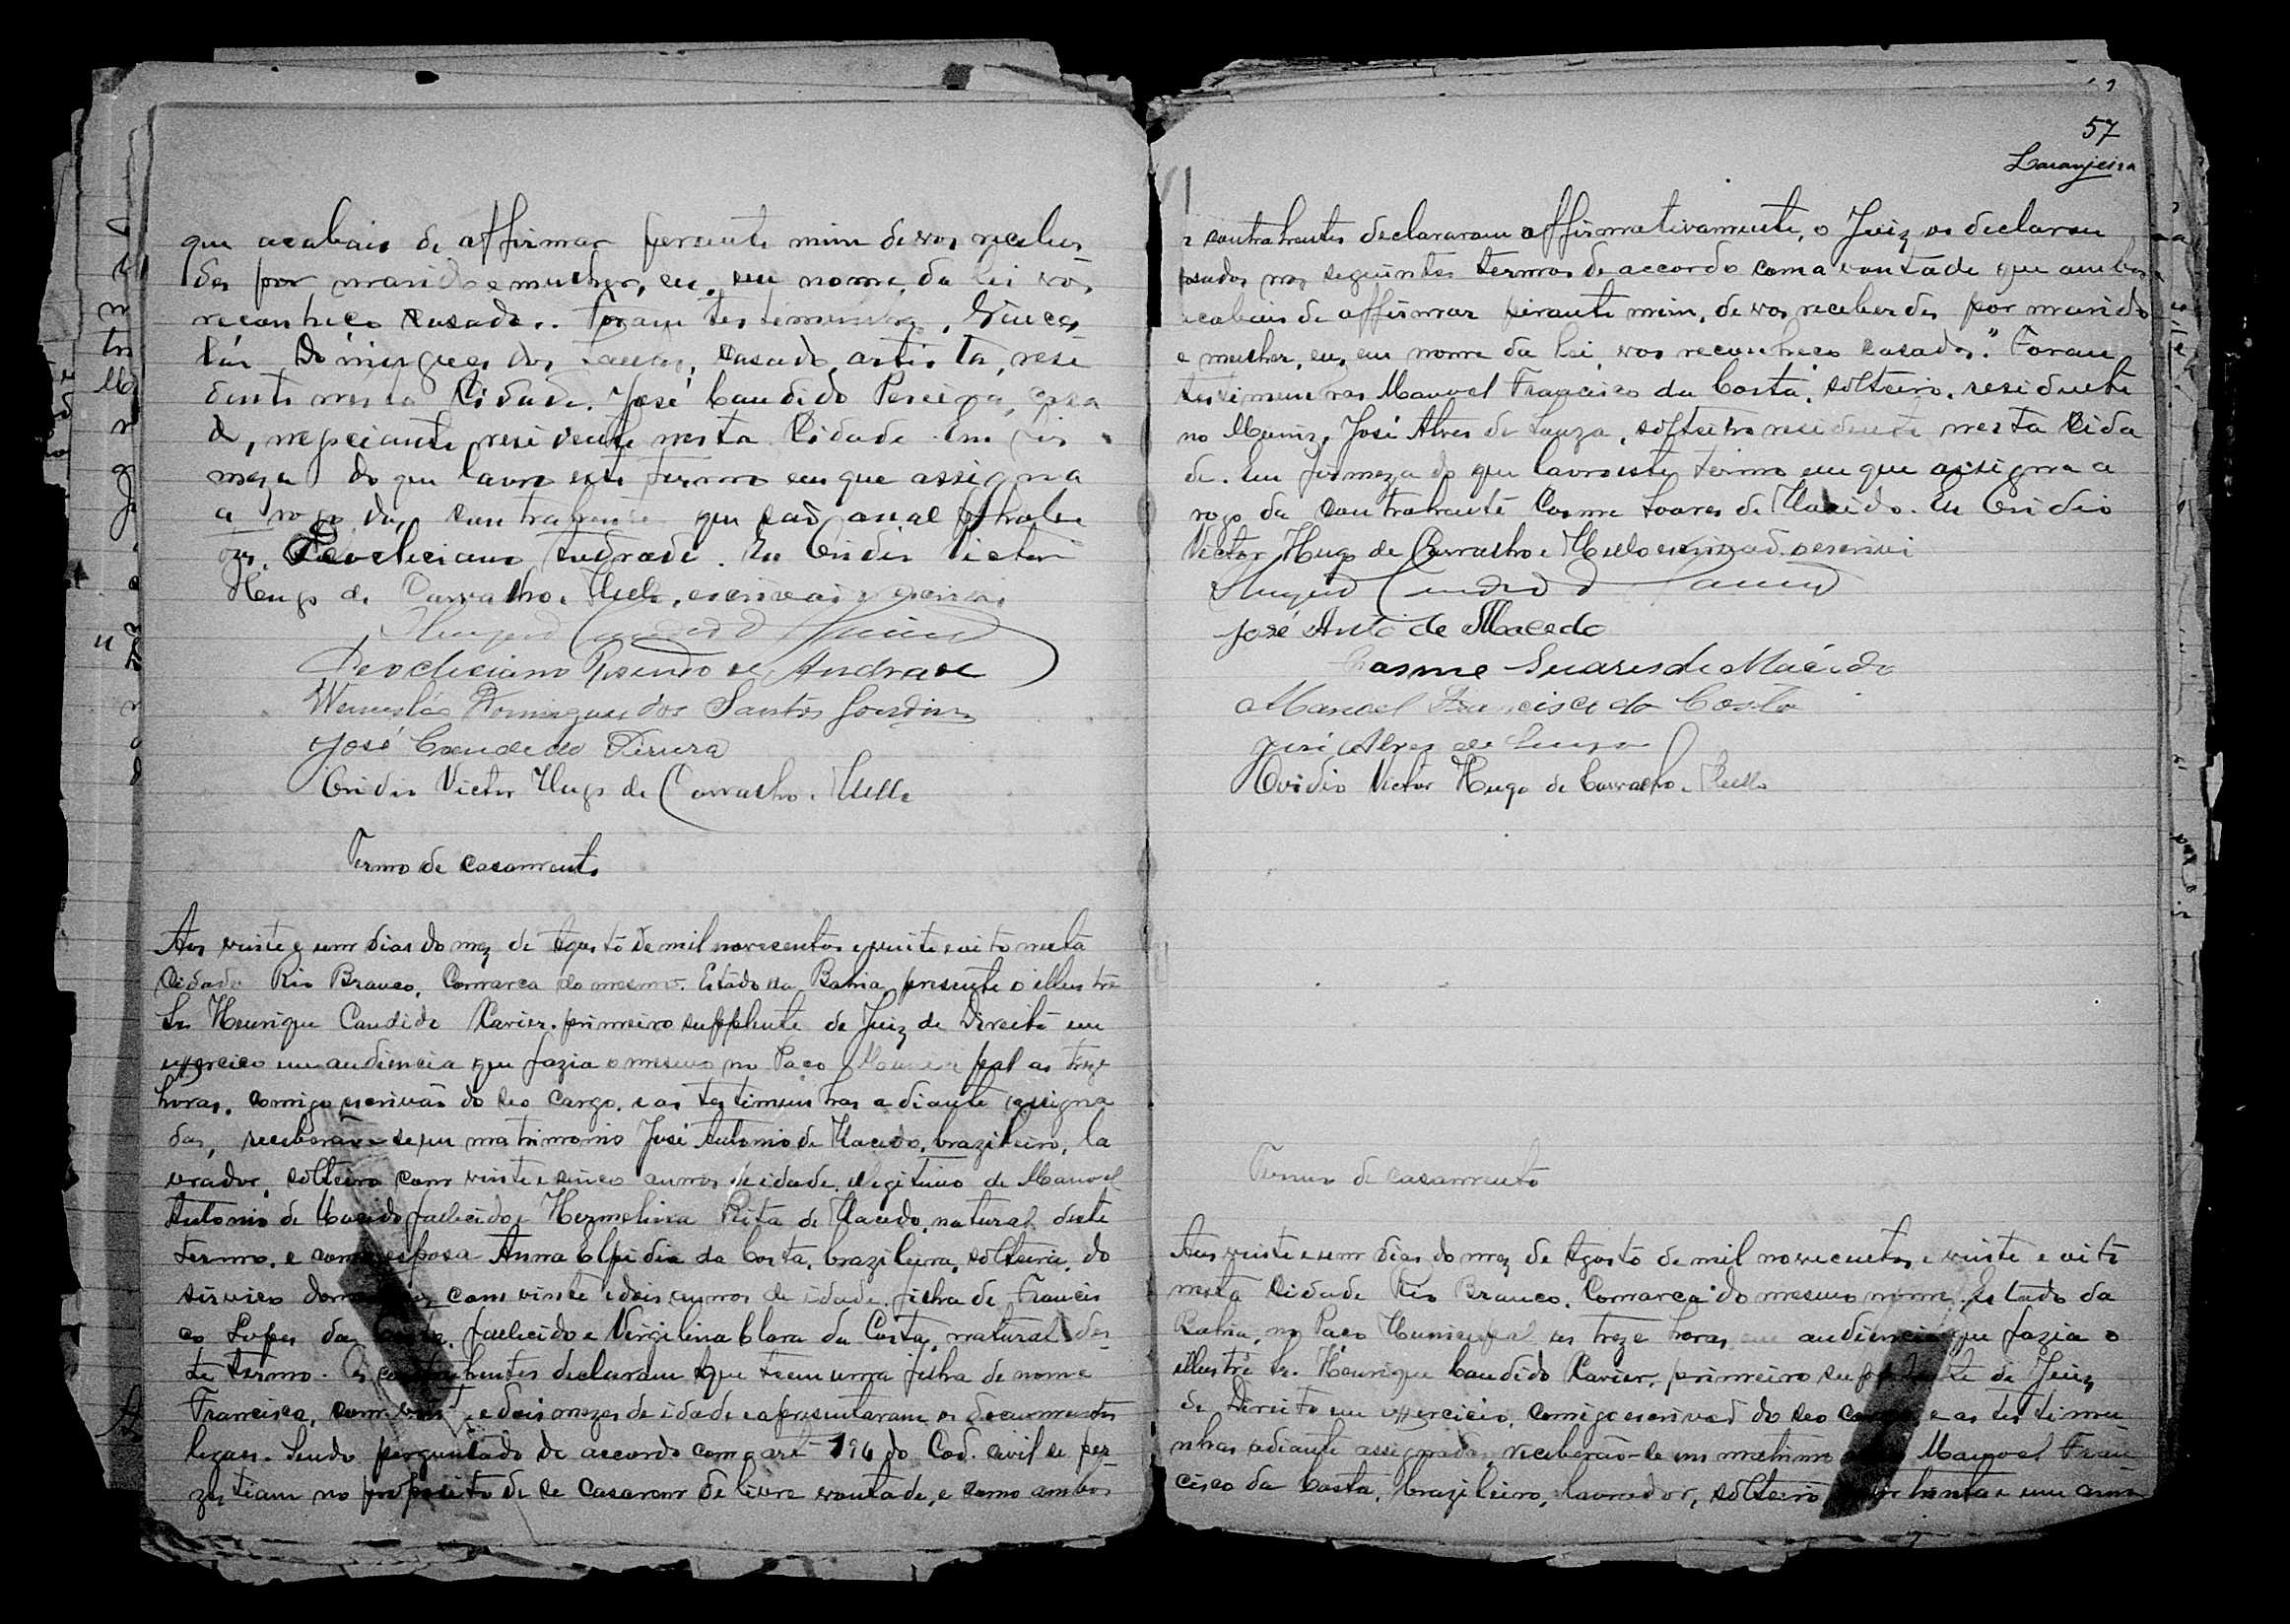 que acabais de affirmar perante mim de vos receber
des por marido e mulher, eu, em nome da lei vos
reconheço casados. Foram testemunhas, Vinces
láu Domingues dos Santos, casado, artista, resi
dente nesta Cidade. José Candido Pereira, casa
do, negociante, residente nesta Cidade. Em fir
meza do que lavro este termo em que assigna
a rogo dos contrahentes que são analphabe
tos, Deocleciano Andrade. Eu Ovidio Victor
Hugo de Carvalho e Mello, escrivão, o escrevi.
Henrique Candido Xavier
Deocleciano Rosendo de Andrade
Wenceslão Domingues dos Santos Gondim
José Candido Pereira
Ovidio Victor Hugo de Carvalho e Mello
Termo de casamento
Aos vinte e um dias do mez de Agosto de mil novecentos e vinte e oito nesta
Cidade Rio Branco, Comarca do mesmo. Estado da Bahia, presente o illustre
Sr. Henrique Candido Xavier, primeiro supplente de Juiz de Direito em
exercicio em audiencia que fazia o mesmo no Paço Municipal as treze
horas, comigo escrivão do seo cargo, e as testimunhas adiante assigna
das, receberão-se em matrimonio José Antonio de Macedo, brazileiro, la
vrador, solteiro com vinte e cinco annos de idade, legitimo de Manoel
Antonio de Macedo, fallecido e Hermelina Rita de Macedo, natural deste
termo, e como esposa Anna Elpidia da Costa, brazileira, solteira, do
serviço domestico, com vinte e dois annos de idade, filha de Francis
co Lopes da Costa, fallecido e Virgilina Clara da Costa, natural des
te termo. Os contrahentes declararam que teem uma filha de nome
Francisca, com vinte e dois mezes de idade e apresentaram os documentos
legaes. Sendo perguntado de accordo com o art 194 do Cod. civil se per
zistiam no proposito de se casarem de livre vontade, e como ambos
57
Laranjeira
s contrahentes declararam affirmativamente, o Juiz os declarou
casados nos seguintes termos de accordo com a vontade que ambos
acabais de affirmar perante mim, de vos receberdes por marido
e mulher, eu, em nome da lei, vos reconheço casados." Foram
testimunhas Manoel Francisco da Costa, solteiro, residente
no Muniz, José Alves de Souza, solteiro residente nesta Cida
de. Em firmeza do que lavro este termo em que assigna a
rogo da contrahente Cosme Soares de Macedo. Eu Ovidio
Victor Hugo de Carvalho e Mello escrivão o escrevi
Henrique Candido Xavier
José Antº de Macedo
Cosme Suares de Macêdo
Manoel Francisco da Costa
José Alves de Souza
Ovidio Victor Hugo de Carvalho e Mello
Termo de casamento
Aos vinte e um dias do mez de Agosto de mil novecentos e vinte e oito
nesta Cidade Rio Branco, Comarca do mesmo nome, Estado da
Bahia, no Paço Municipal as treze horas em audiencia que fazia o
illustre Sr. Henrique Candido Xavier, primeiro supplente de Juiz
de Direito em exercicio, comigo escrivão do seo cargo e as testimu
nhas adiante assignadas, receberão-se em matrimo Manoel Fran
cisco da Costa, brazileiro, lavrador, solteiro trinta e um annos